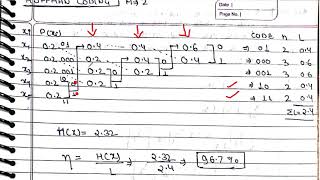 HUFFMAN CODING | M=2
Date
Page No.
P(xᵢ) CODE n L
x₁ 0.2 01 0.4 0.4 0.6 0 ⇒ 01 2 0.4
x₂ 0.2 000 0.2 0.4 0.4 1 ⇒ 000 3 0.6
0.2 001 0.2 0.2 ⇒ 001 3 0.6
0.2 10 0.2 ⇒ 10 2 0.4
0.2 11 ⇒ 11 2 0.4
ΣL=2.4
H(X) = 2.32
η = H(X)/L = 2.32/2.4 = 96.7%